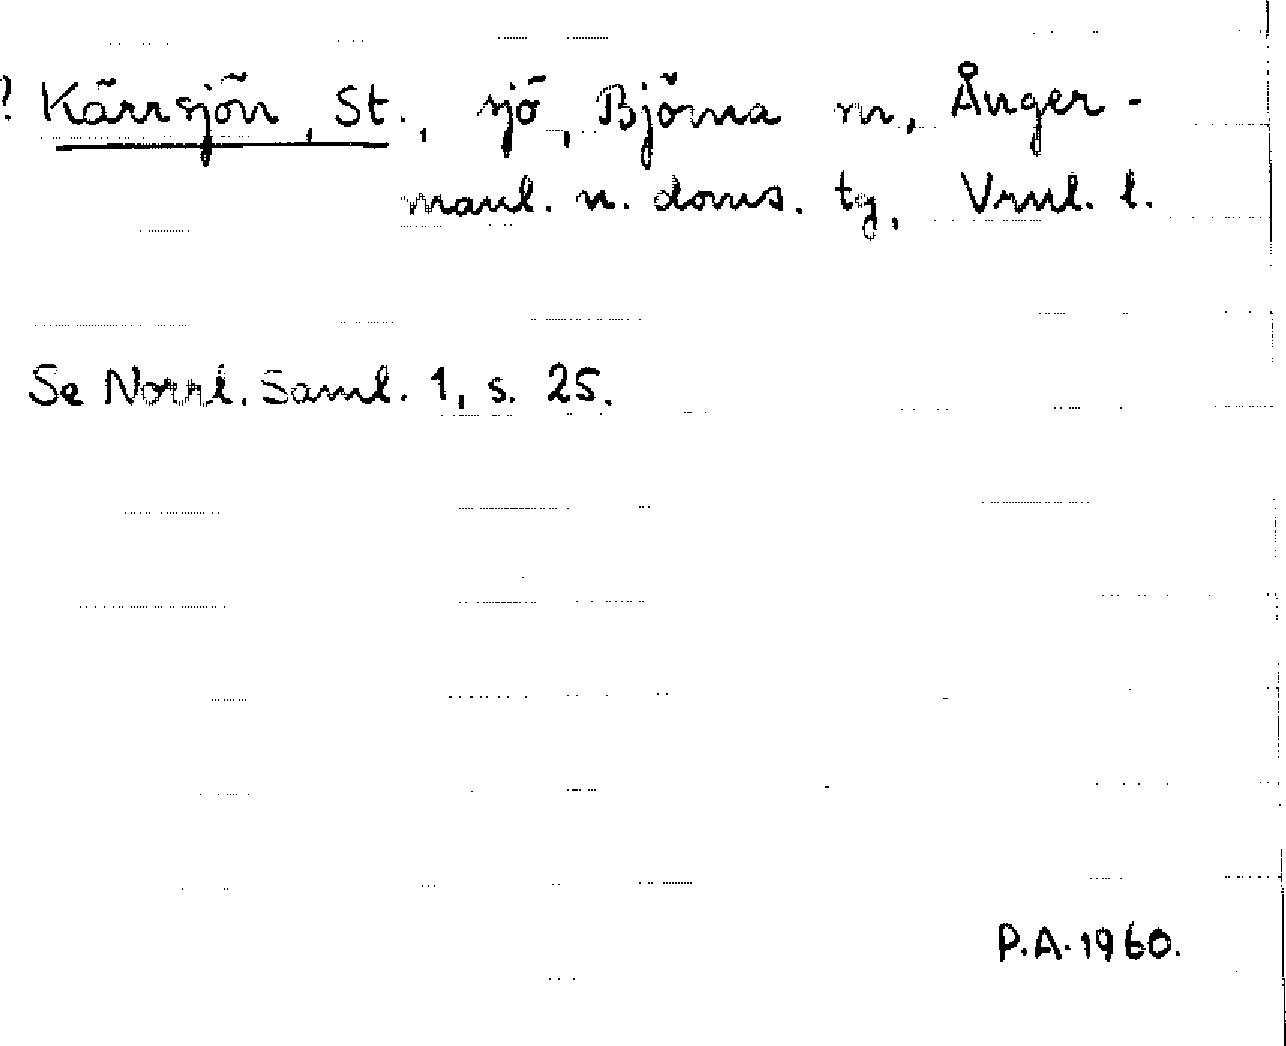 ? Kärrsjön, St., sjö, Björna sn, Ånger-
manl. n. doms. tg, Vrnl. l.
Se Norrl. Saml. 1, s. 25.
P.A. 1960.